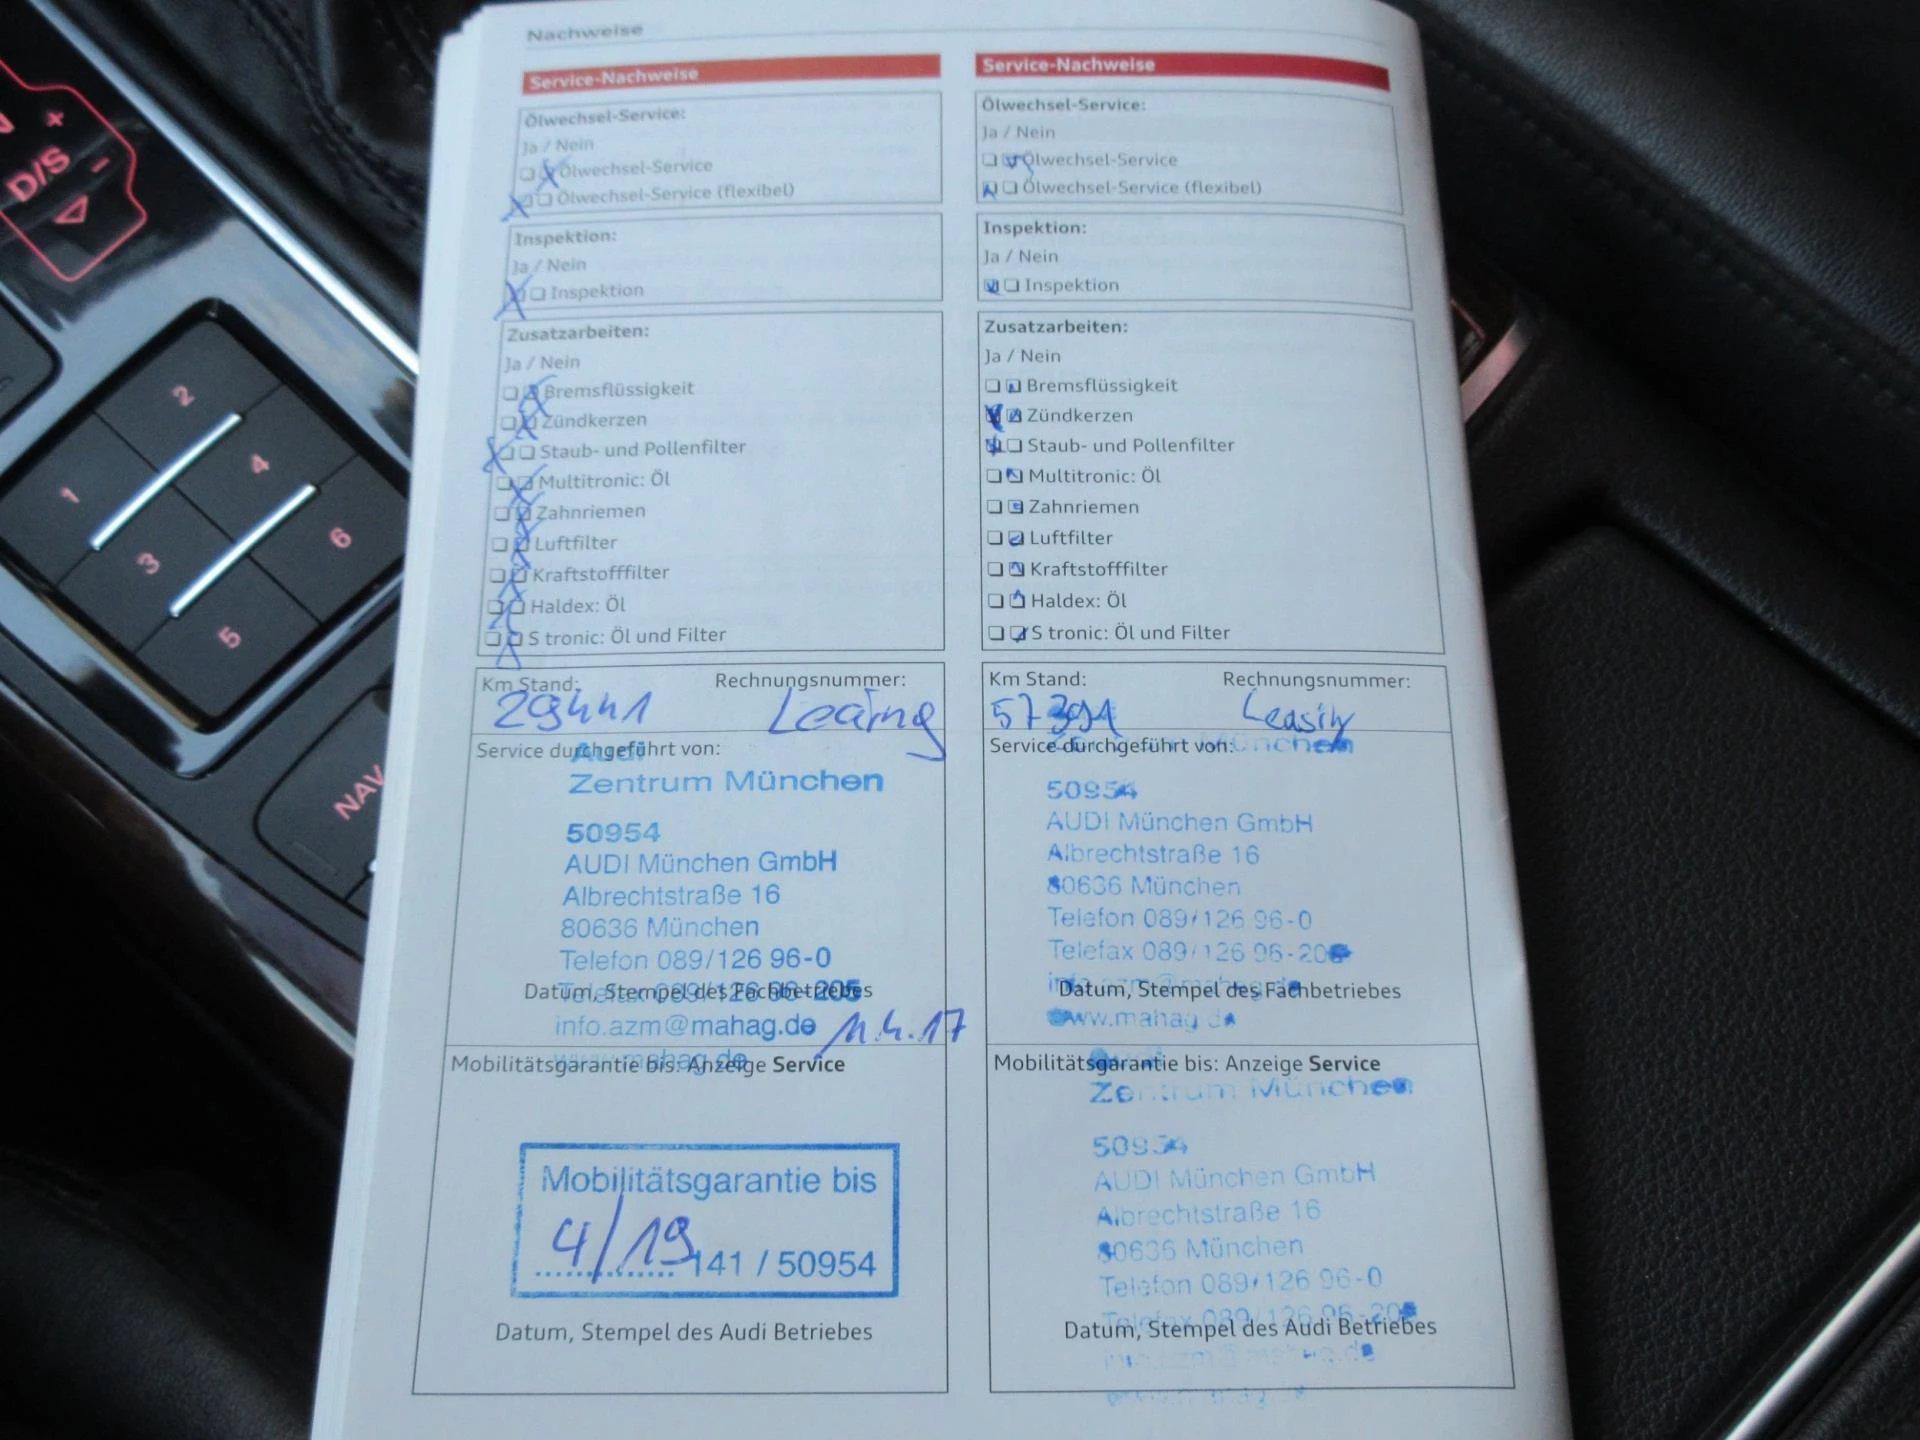 Nachweise
Service-Nachweise
Ölwechsel-Service:
Ja / Nein
Ölwechsel-Service
Ölwechsel-Service (flexibel)
Inspektion:
Ja / Nein
Inspektion
Zusatzarbeiten:
Ja / Nein
Bremsflüssigkeit
Zündkerzen
Staub- und Pollenfilter
Multitronic: Öl
Zahnriemen
Luftfilter
Kraftstofffilter
Haldex: Öl
S tronic: Öl und Filter
Km Stand: Rechnungsnummer:
29441 Leasing
Service durchgeführt von:
Audi
Zentrum München
50954
AUDI München GmbH
Albrechtstraße 16
80636 München
Telefon 089/126 96-0
Telefax 089/126 96-205
Datum, Stempel des Fachbetriebes
info.azm@mahag.de 11.4.17
www.mahag.de
Mobilitätsgarantie bis: Anzeige Service
Mobilitätsgarantie bis
4/19 141 / 50954
Datum, Stempel des Audi Betriebes
Service-Nachweise
Ölwechsel-Service:
Ja / Nein
Ölwechsel-Service
Ölwechsel-Service (flexibel)
Inspektion:
Ja / Nein
Inspektion
Zusatzarbeiten:
Ja / Nein
Bremsflüssigkeit
Zündkerzen
Staub- und Pollenfilter
Multitronic: Öl
Zahnriemen
Luftfilter
Kraftstofffilter
Haldex: Öl
S tronic: Öl und Filter
Km Stand: Rechnungsnummer:
57391 Leasing
Service durchgeführt von:
Zentrum München
50954
AUDI München GmbH
Albrechtstraße 16
80636 München
Telefon 089/126 96-0
Telefax 089/126 96-205
info.azm@mahag.de
Datum, Stempel des Fachbetriebes
www.mahag.de
Mobilitätsgarantie bis: Anzeige Service
Audi
Zentrum München
50954
AUDI München GmbH
Albrechtstraße 16
80636 München
Telefon 089/126 96-0
Telefax 089/126 96-205
Datum, Stempel des Audi Betriebes
info.azm@mahag.de
D/S
+
-
1
2
3
4
5
6
NAV